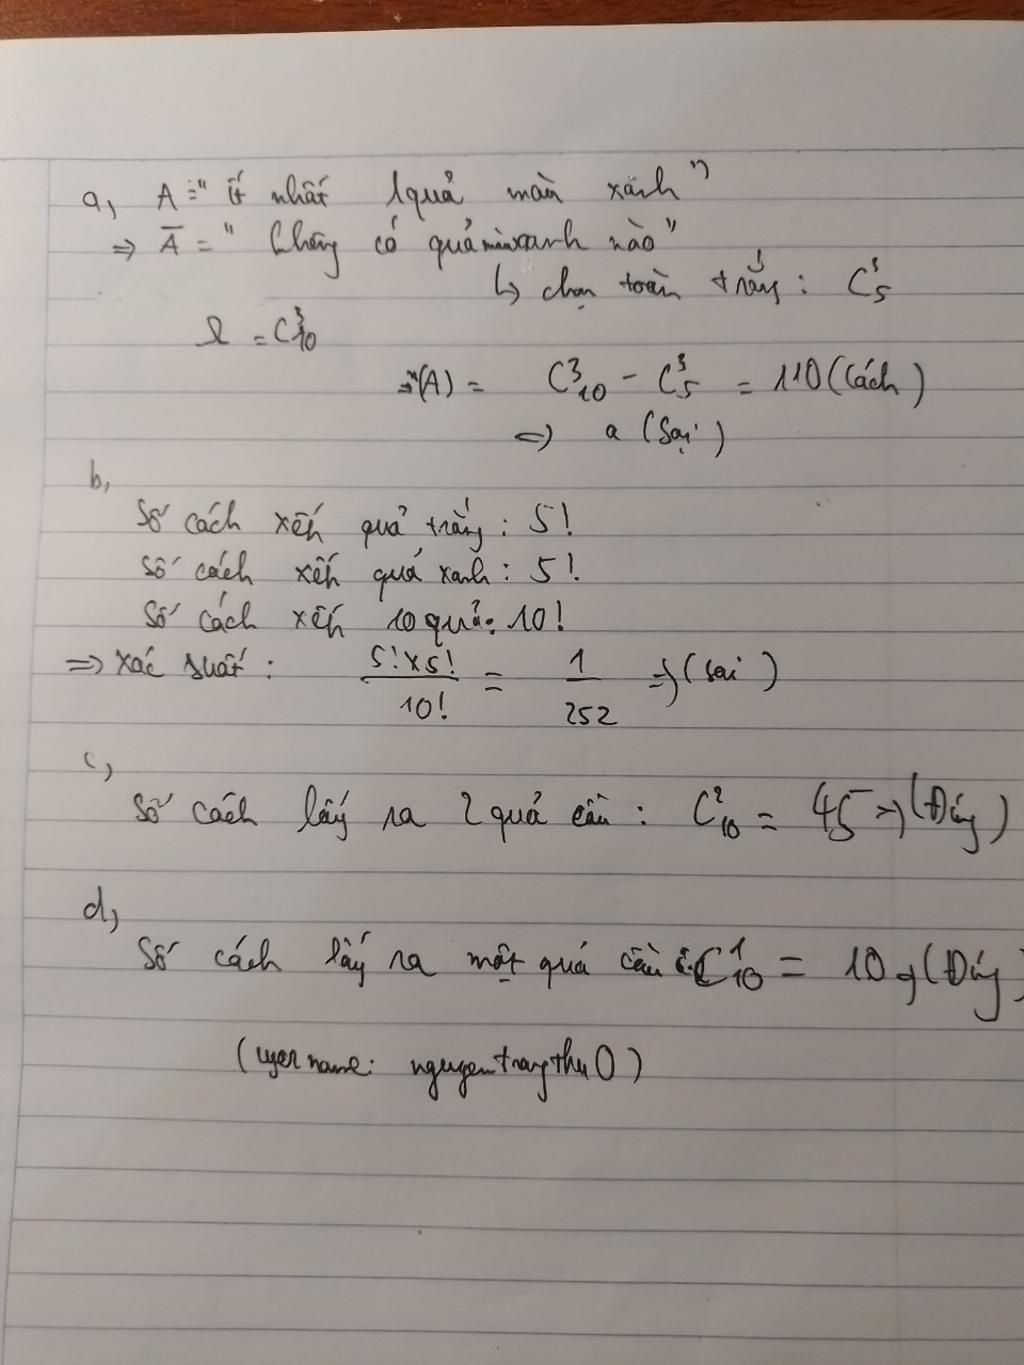 a, A = "ít nhất 1 quả màu xanh"
⇒ A̅ = "Không có quả màu xanh nào"
↳ chọn toàn trắng: C³₅
Ω = C³₁₀
⇒ n(A) = C³₁₀ - C³₅ = 110 (cách)
⇒ a (Sai)
b,
Số cách xếp quả trắng: 5!
Số cách xếp quả xanh: 5!
Số cách xếp 10 quả: 10!
⇒ Xác suất: 5!x5!/10! = 1/252 ⇒ (Sai)
c,
Số cách lấy ra 2 quả cầu: C²₁₀ = 45 ⇒ (Đúng)
d,
Số cách lấy ra một quả cầu: C¹₁₀ = 10 ⇒ (Đúng)
(username: nguyentrangthu0)